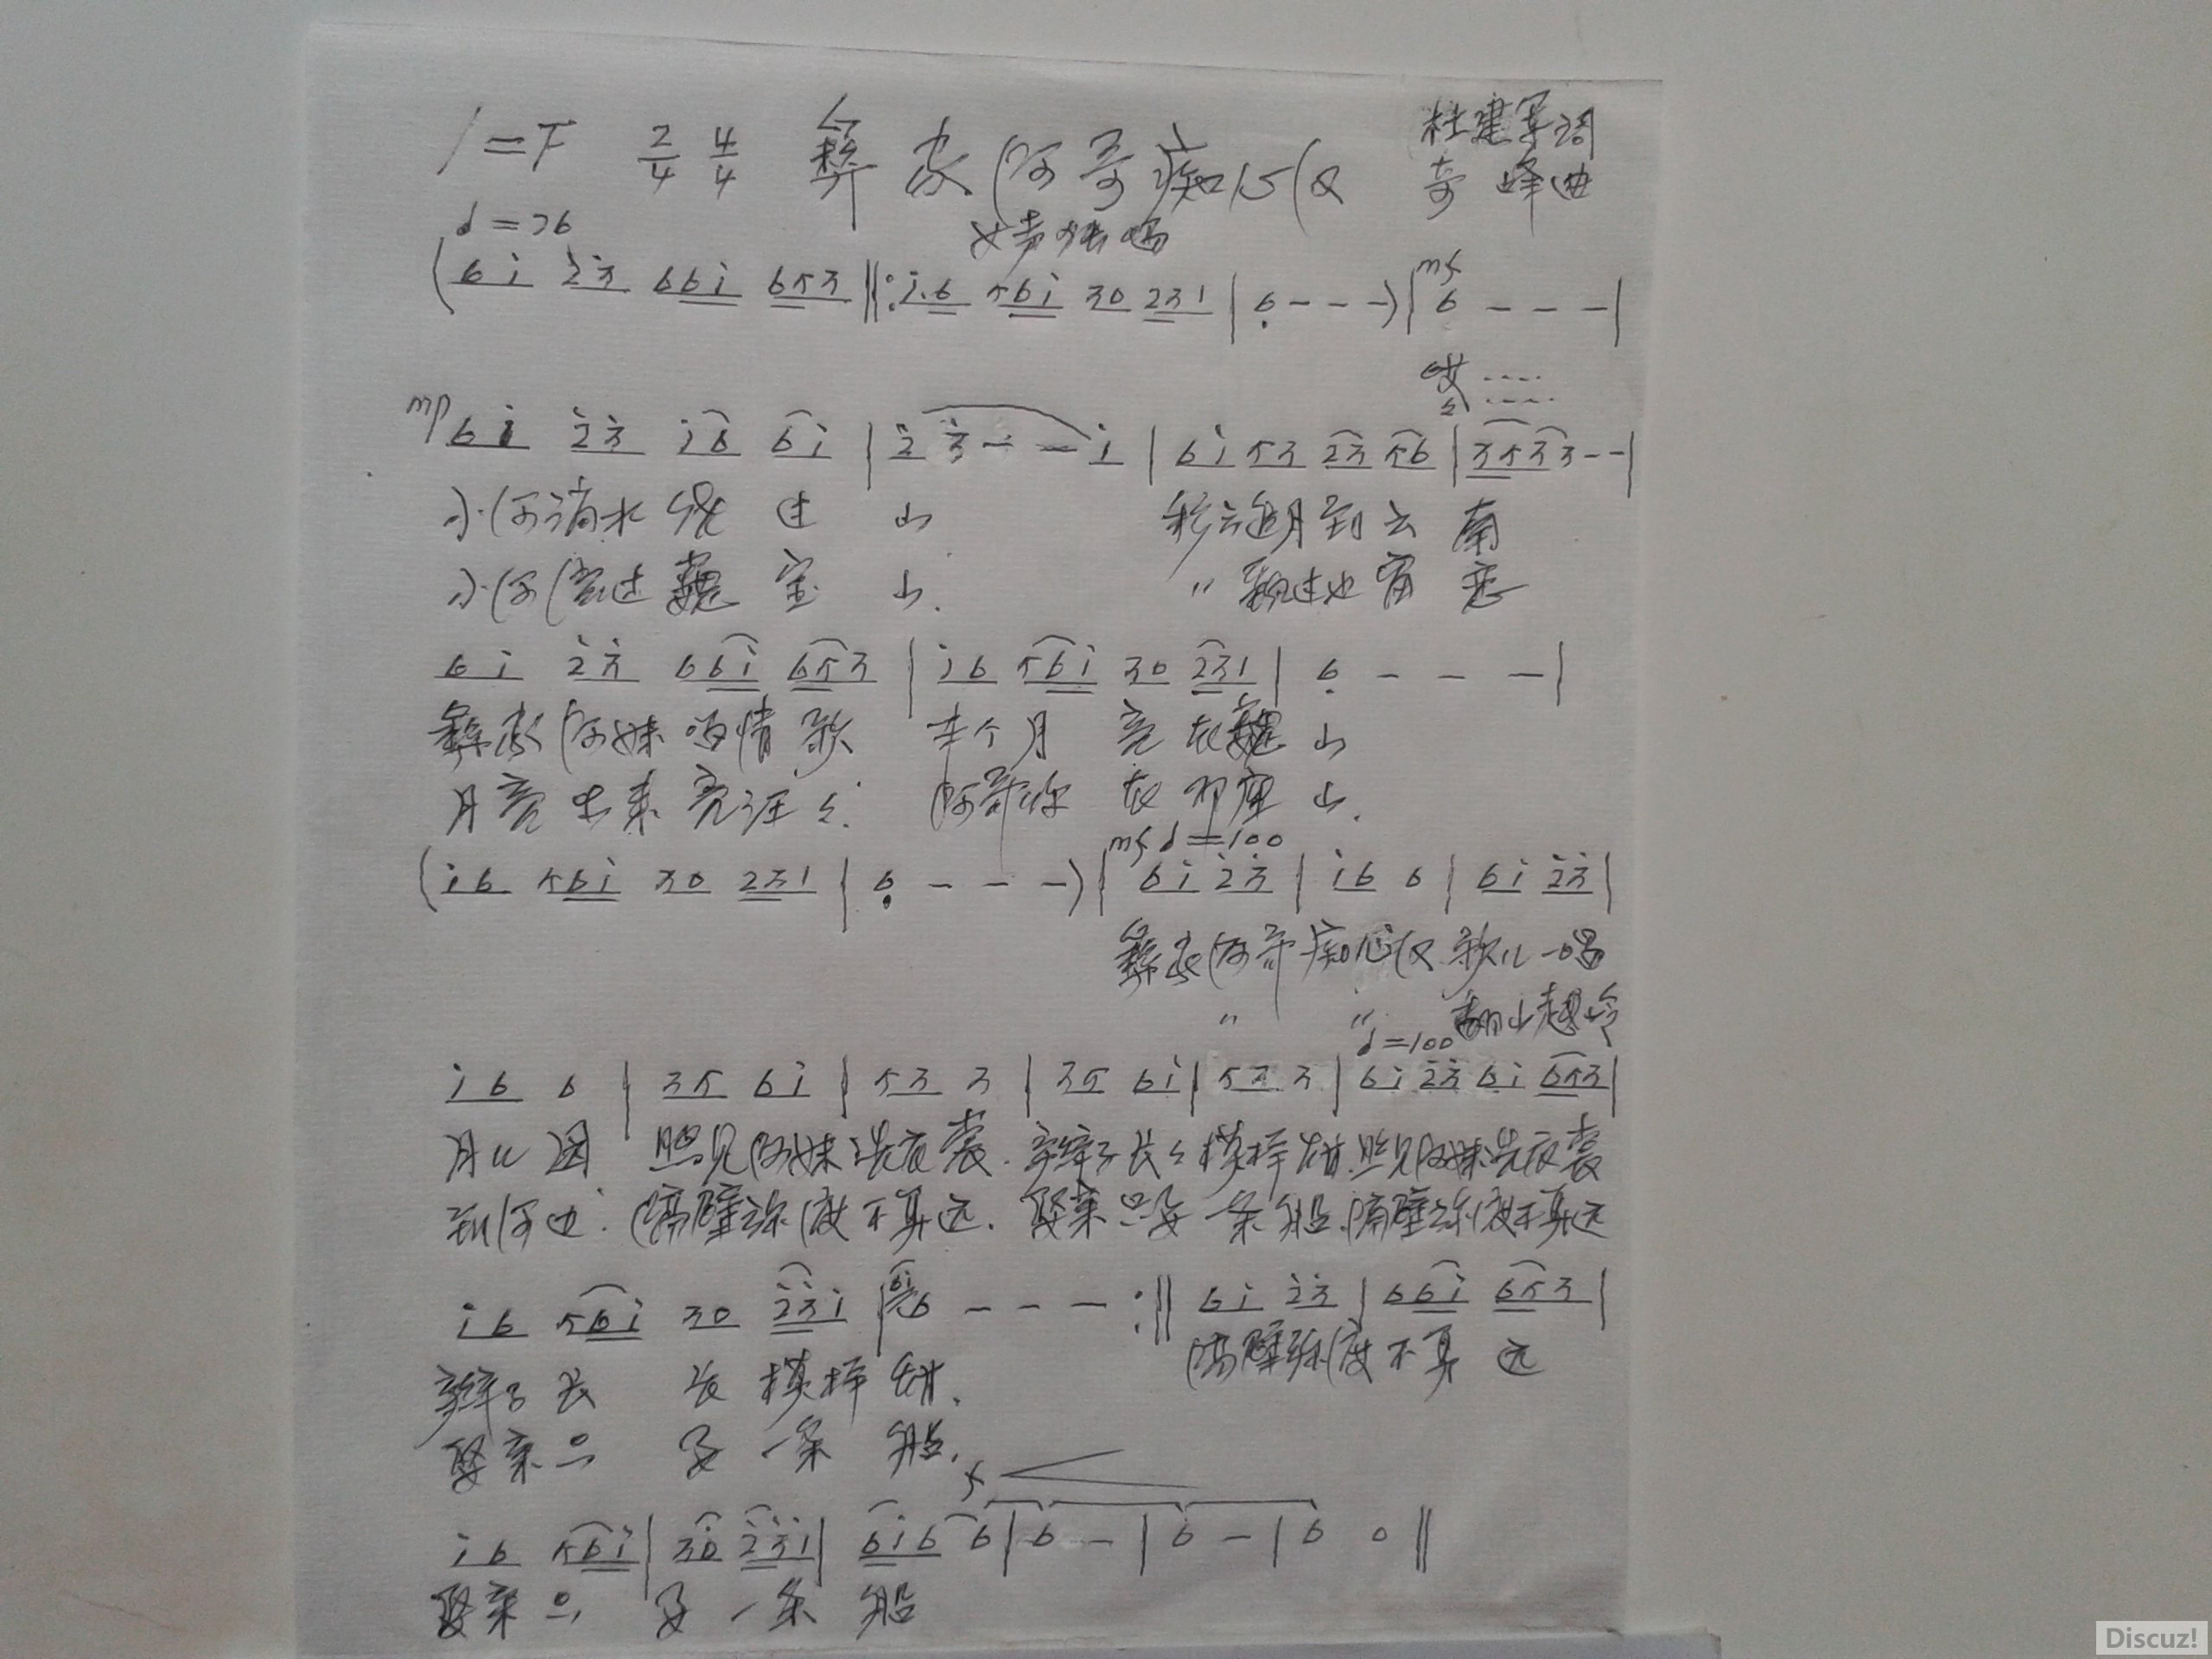 1=F 2/4 4/4 彝家阿哥痴心汉 杜建军词
奇峰曲
♩=76 女声独唱
(6i 2̇3̇ 66i 653 ‖: i.6 56i 30 231 | 6̣ - - -) | mf 6 - - - |
哎 ....
mp 6i 2̇3̇ i6 6i | 2̇ 3̇ - - i | 6i 53 23 56 | 3533 - - |
小河淌水绕过山 彩云追月到云南
小河 过巍宝山. " 翻过 南
6i 2̇3̇ 66i 653 | i6 56i 30 231 | 6̣ - - - |
彝家阿妹唱情歌 半个月亮在巍山
月亮出来亮汪々. 阿哥你在那座山.
(i6 56i 30 231 | 6̣ - - -) | mf ♩=100 6i 2̇3̇ | i6 6 | 6i 2̇3̇ |
彝家阿哥痴心汉 歌儿一唱
" " 翻山越岭
♩=100
i6 6 | 35 6i | 53 3 | 35 6i | 53 3 | 6i 2̇3̇ 6i 653 |
月儿圆 照见阿妹洗衣裳. 辫子长々模样甜. 照见阿妹洗衣裳
到河边. 隔壁弥渡不算远. 娶亲只要一条船. 隔壁弥渡不算远
i6 56i 30 2̇3̇i | 6 - - - :‖ 6i 2̇3̇ | 66i 653 |
辫子长 长模样甜. 隔壁弥渡不算远
娶亲只 要一条船.
f
i6 56i | 30 2̇3̇i | 6i6 6 | 6 - | 6 - | 6 0 ‖
娶亲只 要一条船
Discuz!